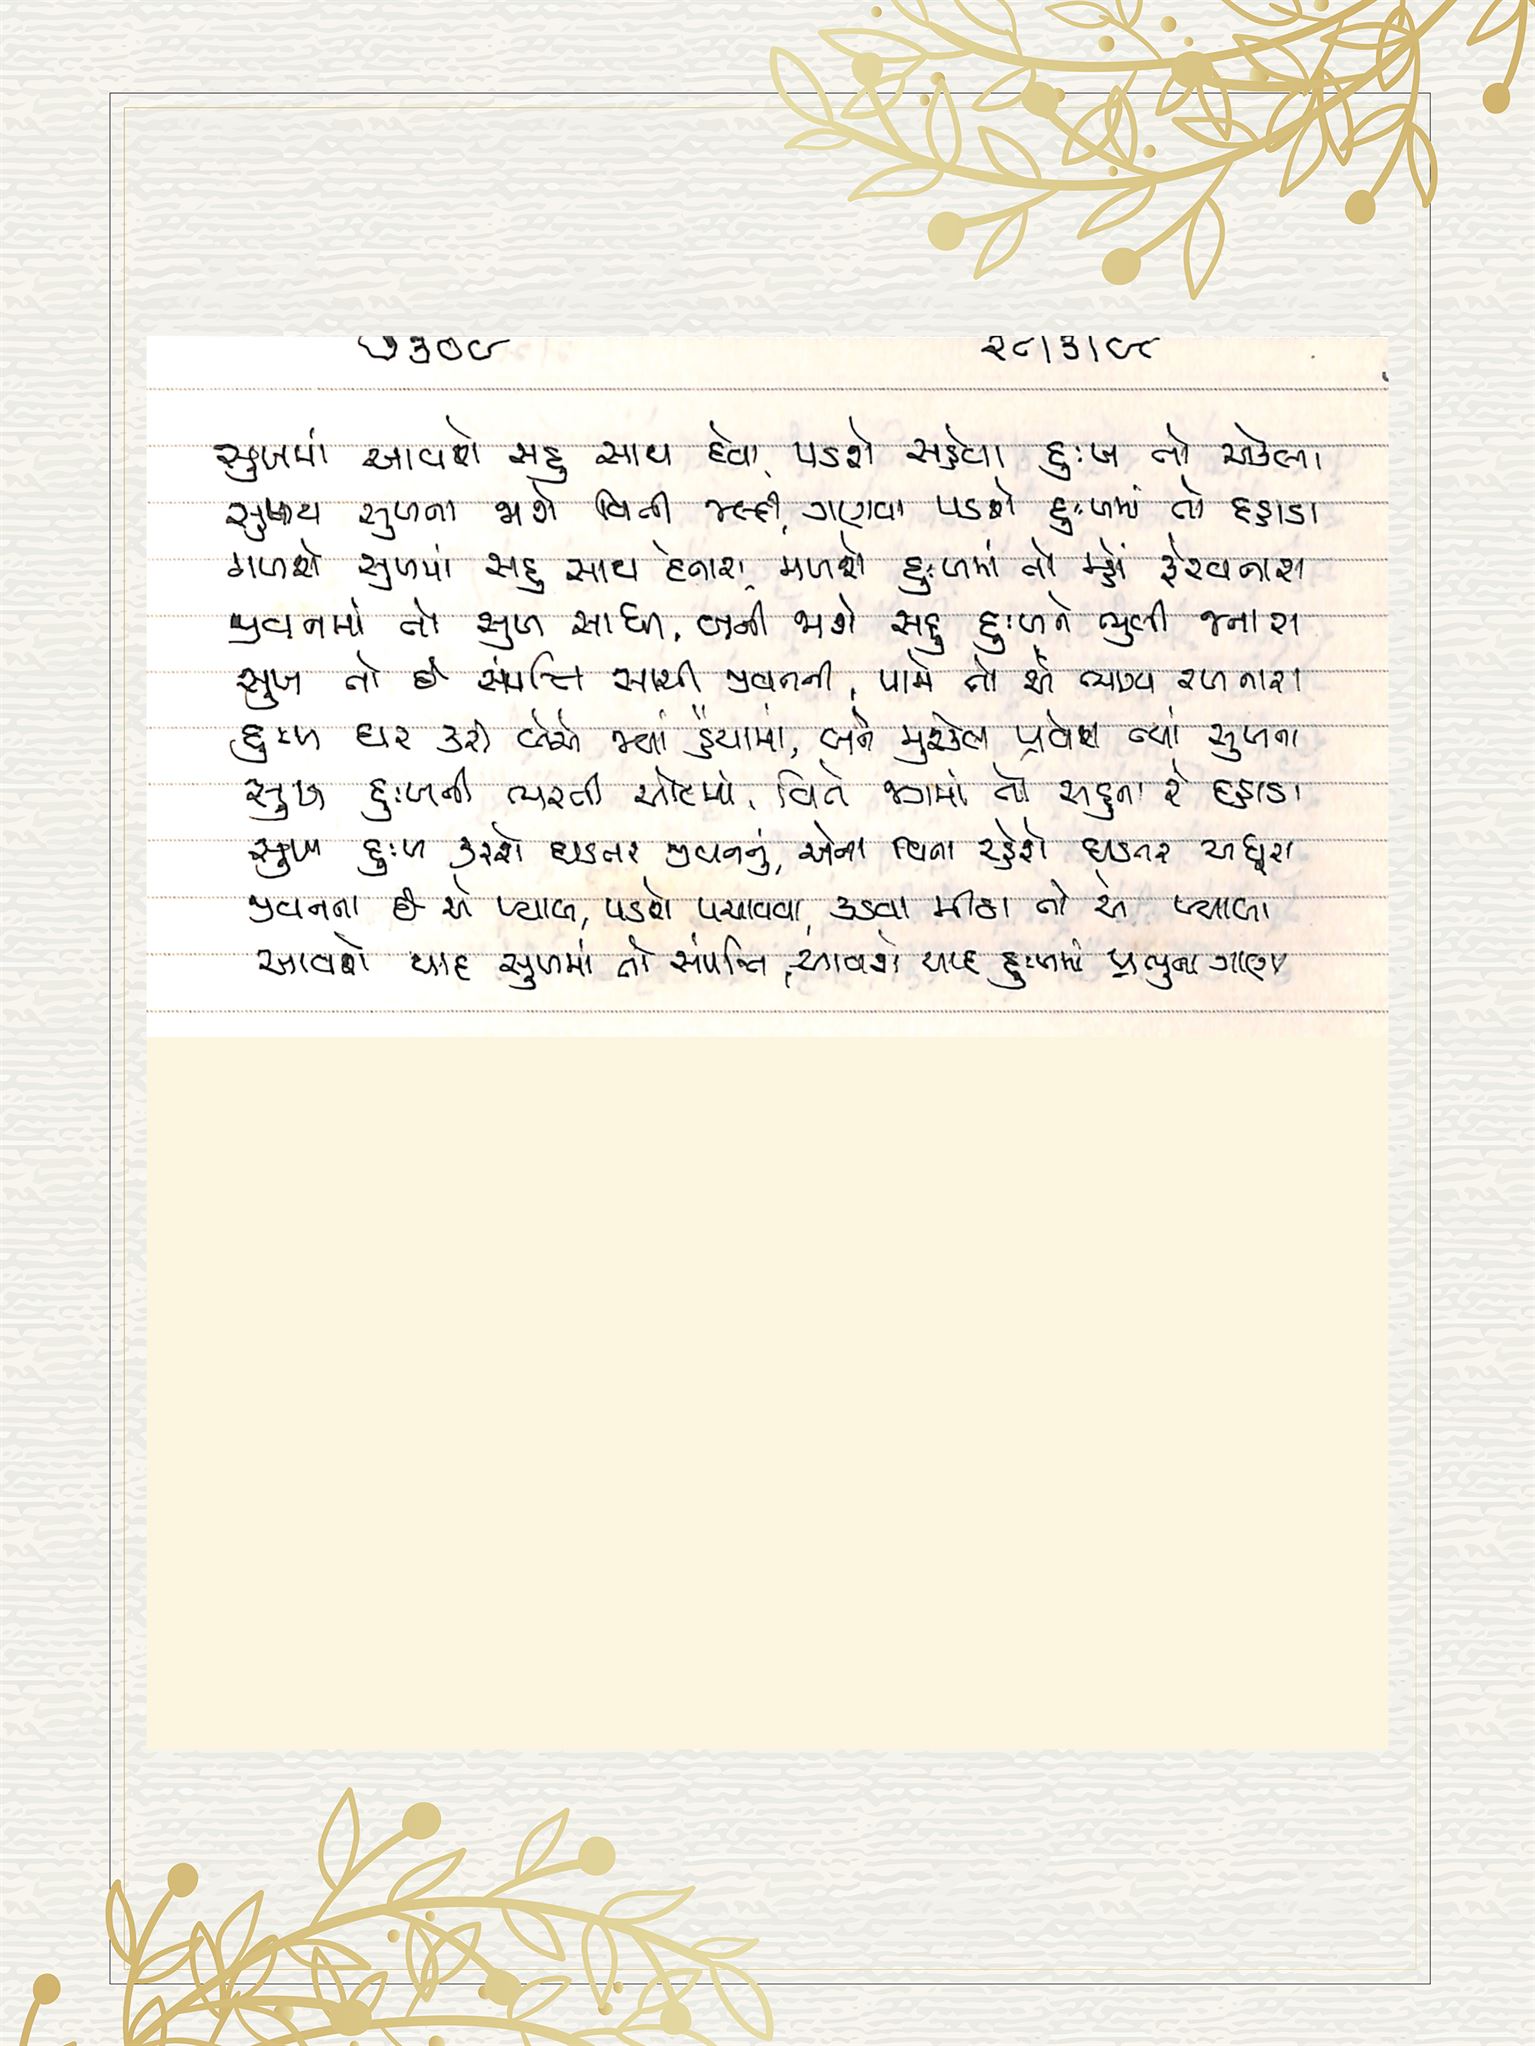 ૭૩૦૯ ૨૮/૩/૯૮
સુખમાં આવશે સહુ સાથ દેવા, પડશે સહેવા દુઃખ તો એકલા
સમય સુખના જાશે વિતી જલ્દી, ગણવા પડશે દુઃખમાં તો દહાડા
મળશે સુખમાં સહુ સાથ દેનારા, મળશે દુઃખમાં તો મ્હોં ફેરવનારા
જીવનમાં તો સુખ સાધી, બની જાશે સહુ દુઃખને ભુલી જનારા
સુખ તો છે સંપત્તિ સાચી જીવનની, પામે તો એ ભાગ્ય રળનારા
દુઃખ ઘર કરી બેસે જ્યાં હૈયામાં, બને મુશ્કેલ પ્રવેશ ત્યાં સુખના
સુખ દુઃખની ભરતી ઓટમાં, વિતે જગમાં તો સહુના રે દહાડા
સુખ દુઃખ કરશે ઘડતર જીવનનું, એના વિના રહેશે ઘડતર અધૂરા
જીવનના છે એ પ્યાલા, પડશે પચાવવા, કડવા મીઠા તો એ પ્યાલા
આવશે યાદ સુખમાં તો સંપત્તિ, આવશે યાદ દુઃખમાં પ્રભુના